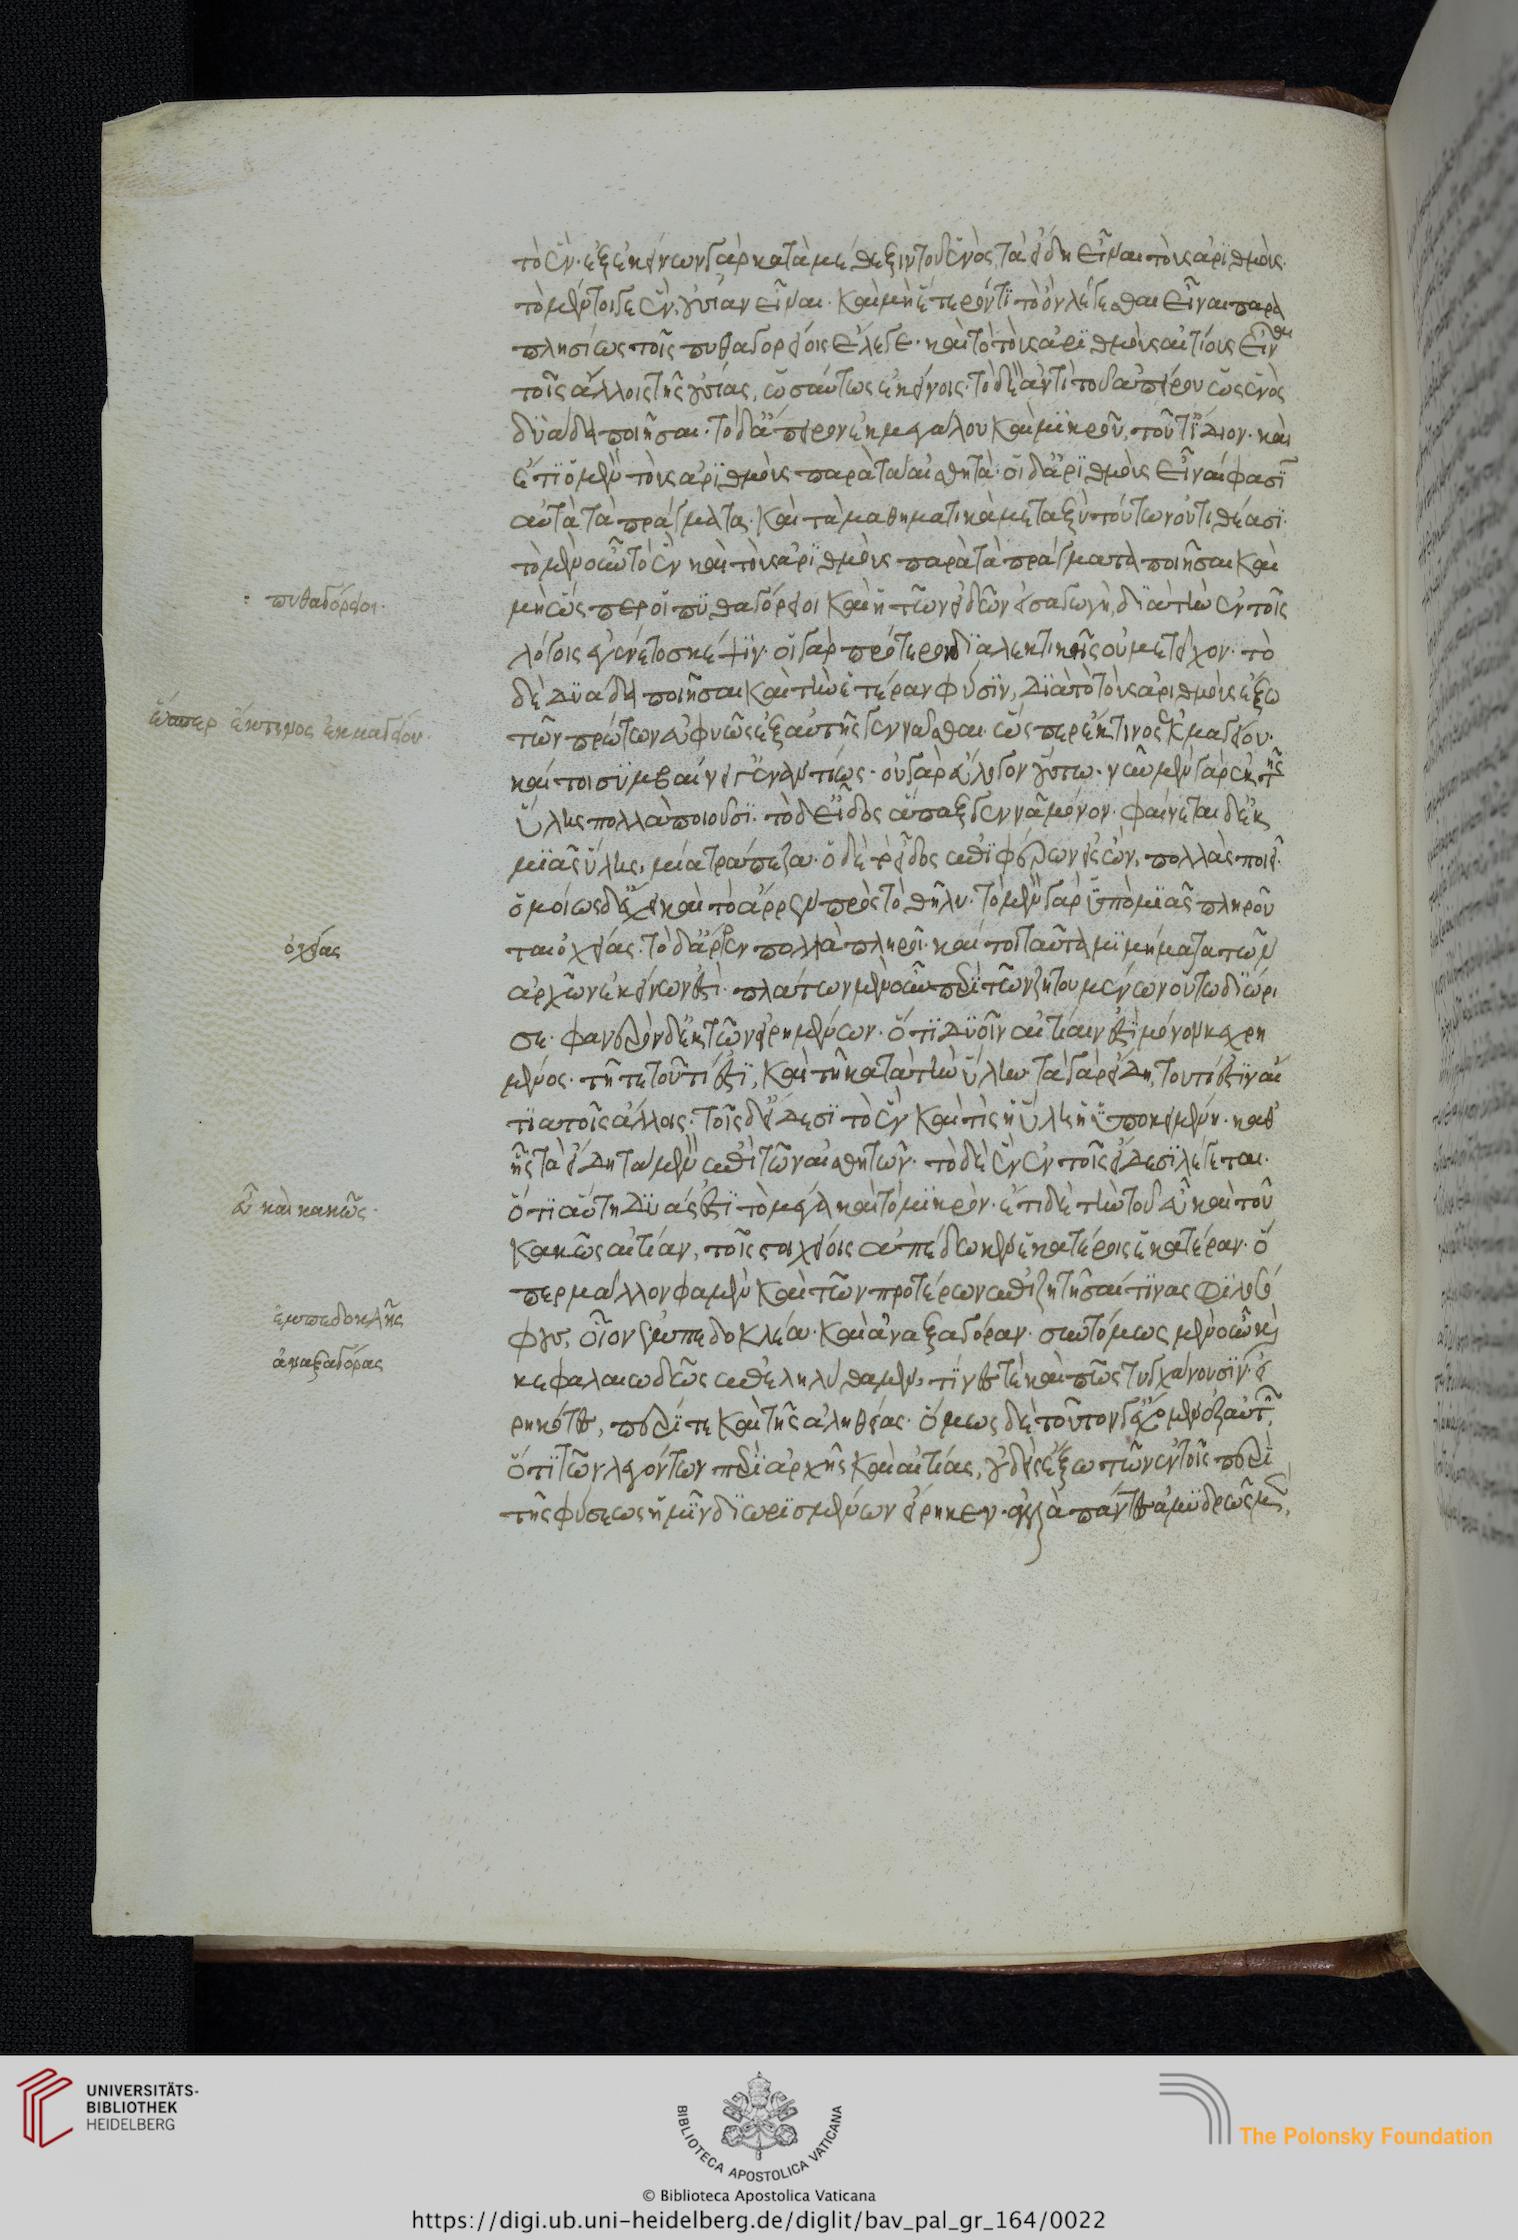 τὸ ἕν· ἐξ ἐκείνων γὰρ κατὰ μέθεξιν τοῦ ἑνὸς, τὰ εἴδη εἶναι τοὺς ἀριθμούς·
τὸ μέντοι γε ἓν, οὐσίαν εἶναι. καὶ μὴ ἕτερόν τι τὸ ὂν λέγεσθαι εἶναι παρα
πλησίως τοῖς πυθαγορείοις ἔλεγε· καὶ τὸ τοὺς ἀριθμοὺς αἰτίους εἶναι
τοῖς ἄλλοις τῆς οὐσίας, ὡσαύτως ἐκείνοις. τὸ δὲ ἀντὶ τοῦ ἀπείρου ὡς ἑνὸς
δυάδα ποιῆσαι· τὸ δ' ἄπειρον ἐκ μεγάλου καὶ μικροῦ, τοῦτ' ἴδιον. καὶ
ἔτι ὁ μὲν τοὺς ἀριθμοὺς παρὰ τὰ αἰσθητά· οἱ δ' ἀριθμοὺς εἶναί φασιν
αὐτὰ τὰ πράγματα. καὶ τὰ μαθηματικὰ μεταξὺ τούτων οὐ τιθέασι.
τὸ μὲν οὖν τὸ ἓν καὶ τοὺς ἀριθμοὺς παρὰ τὰ πράγματα ποιῆσαι καὶ
μὴ ὥσπερ οἱ πυθαγόρειοι καὶ ἡ τῶν εἰδῶν εἰσαγωγὴ, διὰ τὴν ἐν τοῖς
λόγοις ἐγένετο σκέψιν· οἱ γὰρ πρότερον διαλεκτικῆς οὐ μετεῖχον. τὸ
δὲ δυάδα ποιῆσαι καὶ τὴν ἑτέραν φύσιν, διὰ τὸ τοὺς ἀριθμοὺς ἔξω
τῶν πρώτων εὐφυῶς ἐξ αὐτῆς γεννᾶσθαι· ὥσπερ ἔκ τινος ἐκμαγείου.
καί τοι συμβαίνει γ' ἐναντίως· οὐ γὰρ εὔλογον οὕτω· νῦν μὲν γὰρ ἐκ τῆς
ὕλης πολλὰ ποιοῦσι. τὸ δ' εἶδος ἅπαξ γεννᾷ μόνον· φαίνεται δ' ἐκ
μιᾶς ὕλης, μία τράπεζα. ὁ δὲ τὸ εἶδος ἐπιφέρων εἷς ὢν, πολλὰς ποιεῖ.
ὁμοίως δ' ἔχει καὶ τὸ ἄρρεν πρὸς τὸ θῆλυ· τὸ μὲν γὰρ ὑπὸ μιᾶς πληροῦ
ται ὀχείας. τὸ δ' ἄρρεν πολλὰ πληροῖ· καί τοι ταῦτα μιμήματα τῶν
ἀρχῶν ἐκείνων ἐστί. πλάτων μὲν οὖν περὶ τῶν ζητουμένων οὕτω διώρι
σε· φανερὸν δ' ἐκ τῶν εἰρημένων· ὅτι δυοῖν αἰτίαιν ἐστὶ μόνον κεχρη
μένος· τῇ τε τοῦ τί ἐστι, καὶ τῇ κατὰ τὴν ὕλην· τὰ γὰρ εἴδη, τοῦ τί ἐστιν αἴ
τια τοῖς ἄλλοις. τοῖς δ' εἴδεσι τὸ ἕν· καὶ τίς ἡ ὕλη ἡ ὑποκειμένη· καθ'
ἧς τὰ εἴδη τὰ μὲν ἐπὶ τῶν αἰσθητῶν· τὸ δὲ ἓν ἐν τοῖς εἴδεσι λέγεται.
ὅτι αὕτη δυάς ἐστι τὸ μέγα καὶ τὸ μικρόν. ἔτι δὲ τὴν τοῦ εὖ καὶ τοῦ
κακῶς αἰτίαν, τοῖς στοιχείοις ἀπέδωκεν ἑκατέροις ἑκατέραν· ὅ
περ μᾶλλον φαμὲν καὶ τῶν προτέρων ἐπιζητῆσαί τινας φιλοσό
φους, οἷον ἐμπεδοκλέα καὶ ἀναξαγόραν. συντόμως μὲν οὖν καὶ
κεφαλαιωδῶς ἐπεληλύθαμεν, τίνες τὲ καὶ πῶς τυγχάνουσιν εἰ
ρηκότες, περί τε καὶ τῆς ἀληθείας. ὅμως δὲ τοῦτόν γ' ἔχομεν ἐξ αὐτῶν,
ὅτι τῶν λεγόντων περὶ ἀρχῆς καὶ αἰτίας, οὐδεὶς ἔξω τῶν ἐν τοῖς περὶ
τῆς φύσεως ἡμῖν διωρισμένων εἴρηκεν. ἀλλὰ πάντες ἀμυδρῶς μὲν,
πυθαγόρειοι·
ὥσπερ ἔκ τινος ἐκμαγείου·
ὀχείας
εὖ καὶ κακῶς·
ἐμπεδοκλῆς
ἀναξαγόρας
UNIVERSITÄTS-
BIBLIOTHEK
HEIDELBERG
BIBLIOTECA APOSTOLICA VATICANA
The Polonsky Foundation
© Biblioteca Apostolica Vaticana
https://digi.ub.uni-heidelberg.de/diglit/bav_pal_gr_164/0022